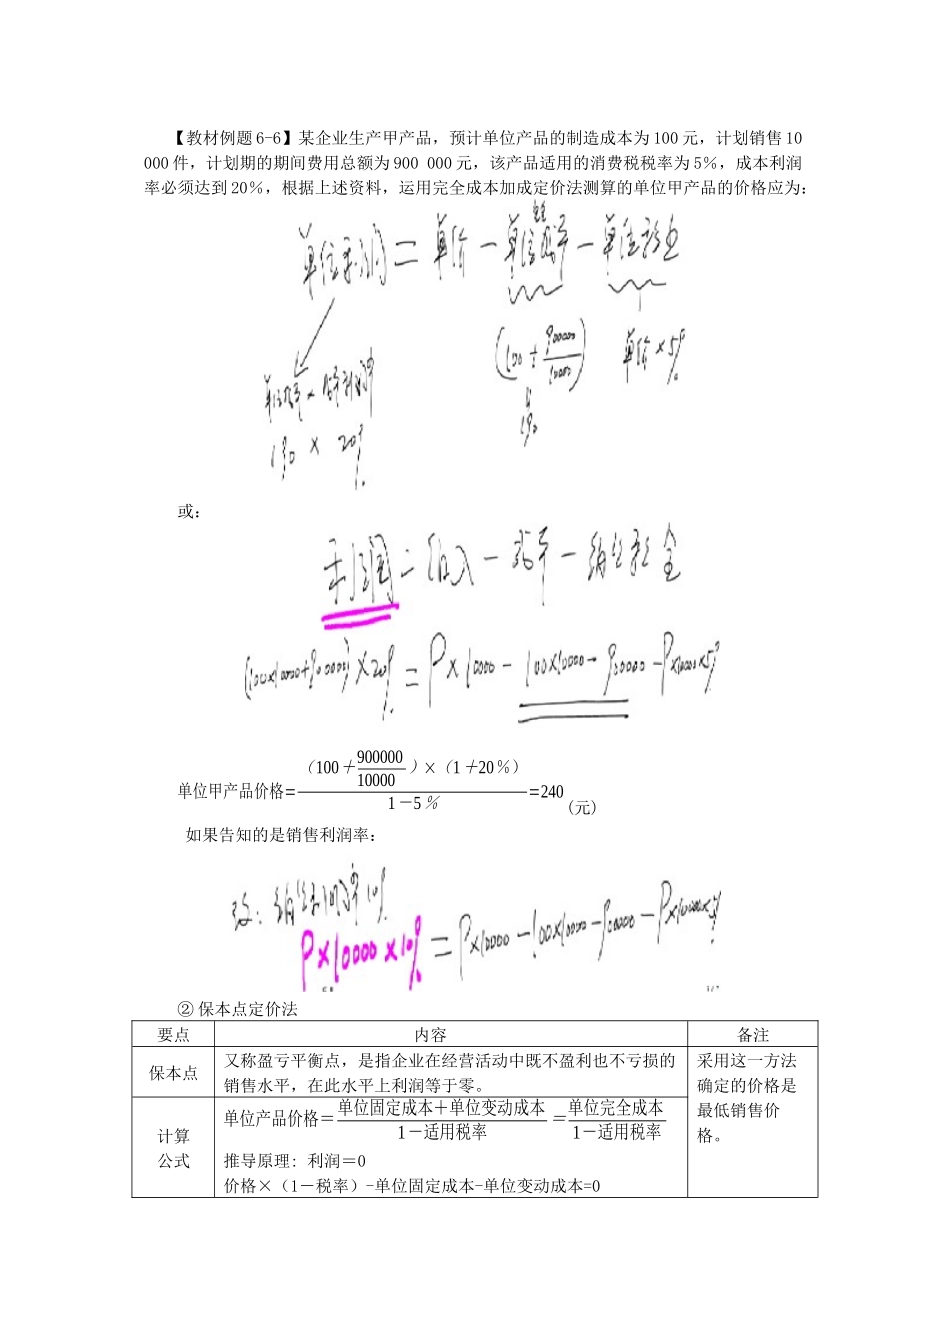 【教材例题 6-6】某企业生产甲产品，预计单位产品的制造成本为 100 元，计划销售 10
000 件，计划期的期间费用总额为 900 000 元，该产品适用的消费税税率为 5％，成本利润
率必须达到 20％，根据上述资料，运用完全成本加成定价法测算的单位甲产品的价格应为：
单位利润＝单价－单位成本－单位税金
(100 + 900000/10000) 单价×5%
190
单位成本×成本利润率
190 × 20%
或：
利润＝收入－成本－销售税金
(100×10000+900000)×20% = P×10000－100×10000－900000－P×10000×5%
单位甲产品价格=（100＋900000/10000）×（1＋20％）/1－5％=240(元)
如果告知的是销售利润率：
改：销售利润率10%
P×10000×10% = P×10000－100×10000－900000－P×10000×5%
② 保本点定价法
要点 内容 备注
保本点 又称盈亏平衡点，是指企业在经营活动中既不盈利也不亏损的 采用这一方法
销售水平，在此水平上利润等于零。 确定的价格是
最低销售价
格。
计算
公式
单位产品价格＝单位固定成本＋单位变动成本/1－适用税率＝单位完全成本/1－适用税率
推导原理：利润＝0
价格×（1－税率）-单位固定成本-单位变动成本=0